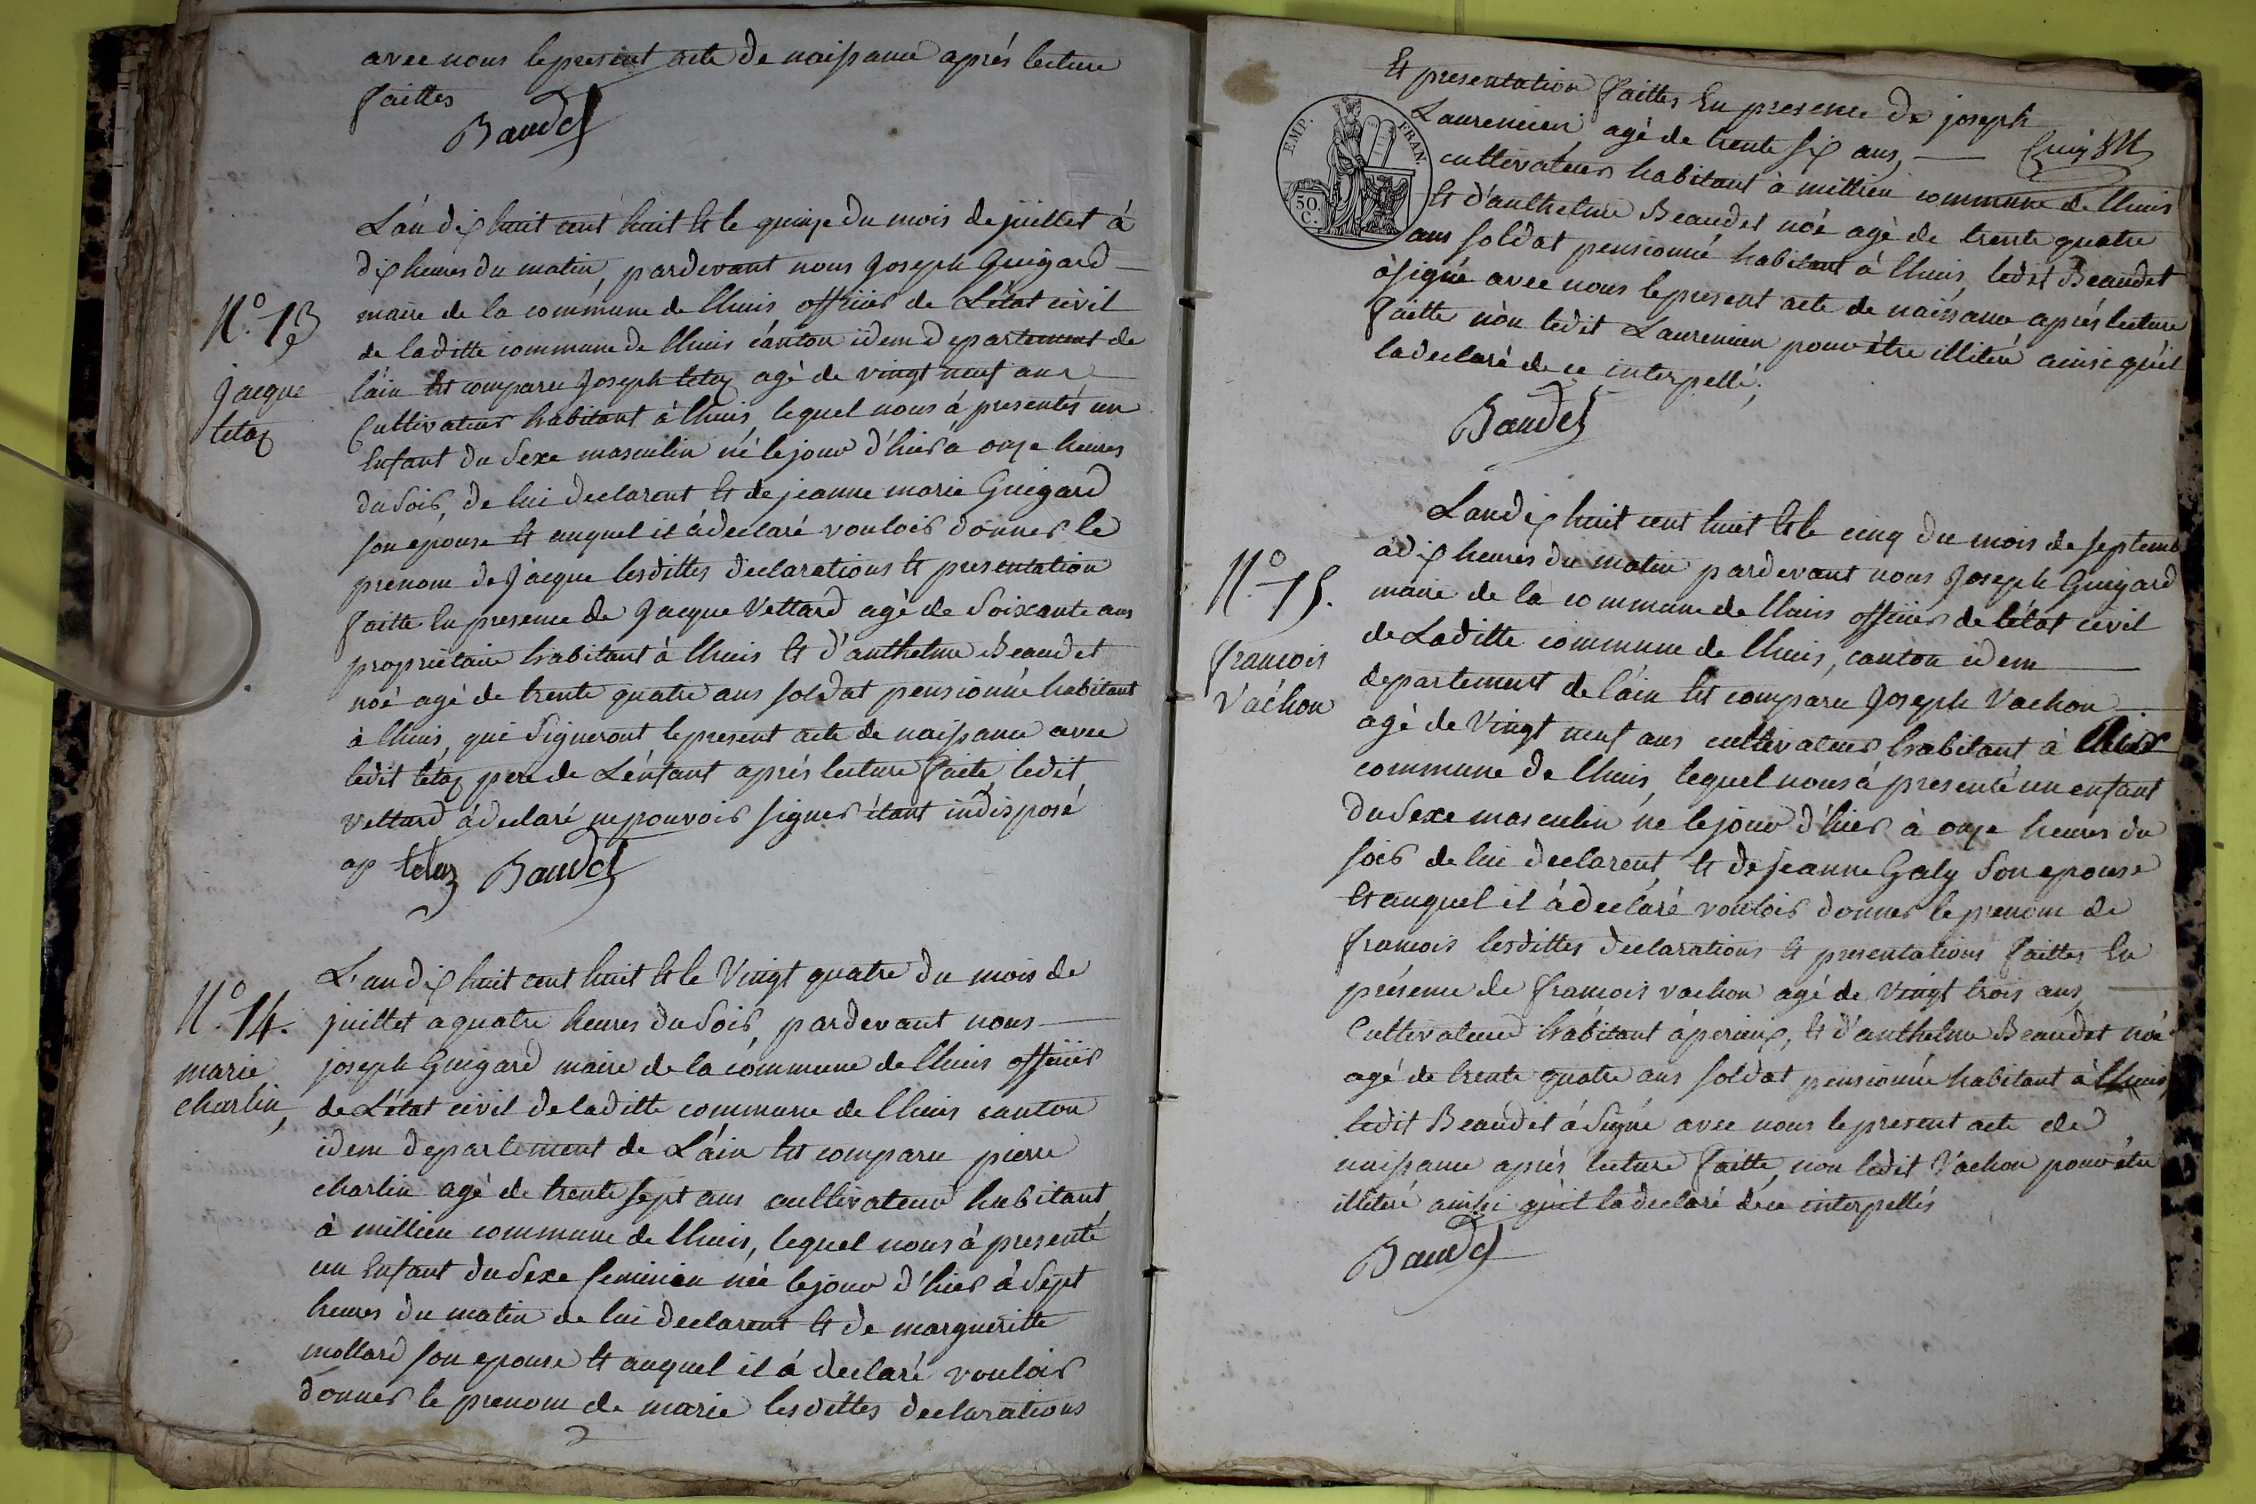 avec nous le present acte de naissance aprés lecture
faittes
Baudet
L'an dix huit cent huit et le quinze du mois de juillet à
dix heures du matin, pardevant nous Joseph Guigard
maire de la commune de lhuis officier de L'état civil
N.° 13
de laditte commune de lhuis canton idem departement de
Jacque
l'ain Est comparu Joseph tetaz agé de vingt neuf ans
tetaz
Cultivateur habitant à lhuis, lequel nous à presentés un
Enfant du Sexe masculin né le jour d'hier à onze heures
du Soir, de lui declarent et de jeanne marie Guigard
son epouse et auquel il à declaré vouloir donner le
prenom de Jacque lesdittes declarations et presentation
faitte En presence de Jacque Vettard agé de Soixante ans
proprietaire habitant à lhuis et d'anthelme Beaudet
noé agé de trente quatre ans soldat pensionné habitant
à lhuis, qui Signeront le present acte de naissance avec
ledit tetaz pere de L'enfant aprés lecture faite, ledit
vettard à declaré ne pouvoir signer étant indisposé
ap tetaz Baudet
L'an dix huit cent huit et le Vingt quatre du mois de
N.° 14.
juillet a quatre heures du Soir pardevant nous
marie
joseph Guigard maire de la commune de lhuis officier
charlin,
de L'état civil de laditte commune de lhuis canton
idem departement de L'ain Est comparu pierre
charlin agé de trente sept ans cultivateur habitant
à millieu commune de lhuis, lequel nous à presenté
un Enfant du Sexe feminin née le jour d'hier à Sept
heures du matin de lui declarent et de margueritte
mollard son epouse et auquel il à declaré vouloir
donner le prenom de marie lesdittes declarations
Et presentation faittes En presence de joseph
EMP. FRAN.
50. C.
Laurencien agé de trente six ans,
cultivateur habitant à millieu commune de lhuis
et d'anthelme Beaudet noé agé de trente quatre
ans soldat pensionné habitant à lhuis, ledit Beaudet
à signé avec nous le present acte de naissance aprés lecture
faitte nòn ledit Laurencien pour être illiteré ainsi qu'il
la declaré de ce interpellé;
Baudet
L'an dix huit cent huit et le cinq du mois de septemb
N.° 15.
à dix heures du matin pardevant nous Joseph Guigard
maire de la commune de lhuis officier de l'état civil
françois
de Laditte commune de lhuis, canton idem
Vachon
departement de l'ain Est comparu Joseph Vachon
agé de Vingt neuf ans cultivateur habitant à
commune de lhuis, lequel nous à presenté un enfant
du Sexe masculin né le jour d'hier à onze heures du
soir de lui declarent, et de jeanne Galy Son epouse
et auquel il à declaré vouloir donner le prenom de
françois lesdittes declarations et presentations faittes En
présence de françois vachon agé de Vingt trois ans
Cultivateur habitant à perieux, et d'anthelme Beaudet noé
agé de trente quatre ans soldat pensionnée habitant à lhuis,
ledit Beaudet à Signé avec nous le present acte de
naissance aprés lecture faitte, non ledit Vachon pour être
illiteré ainsi qu'il la declaré de ce interpellés
Baudet